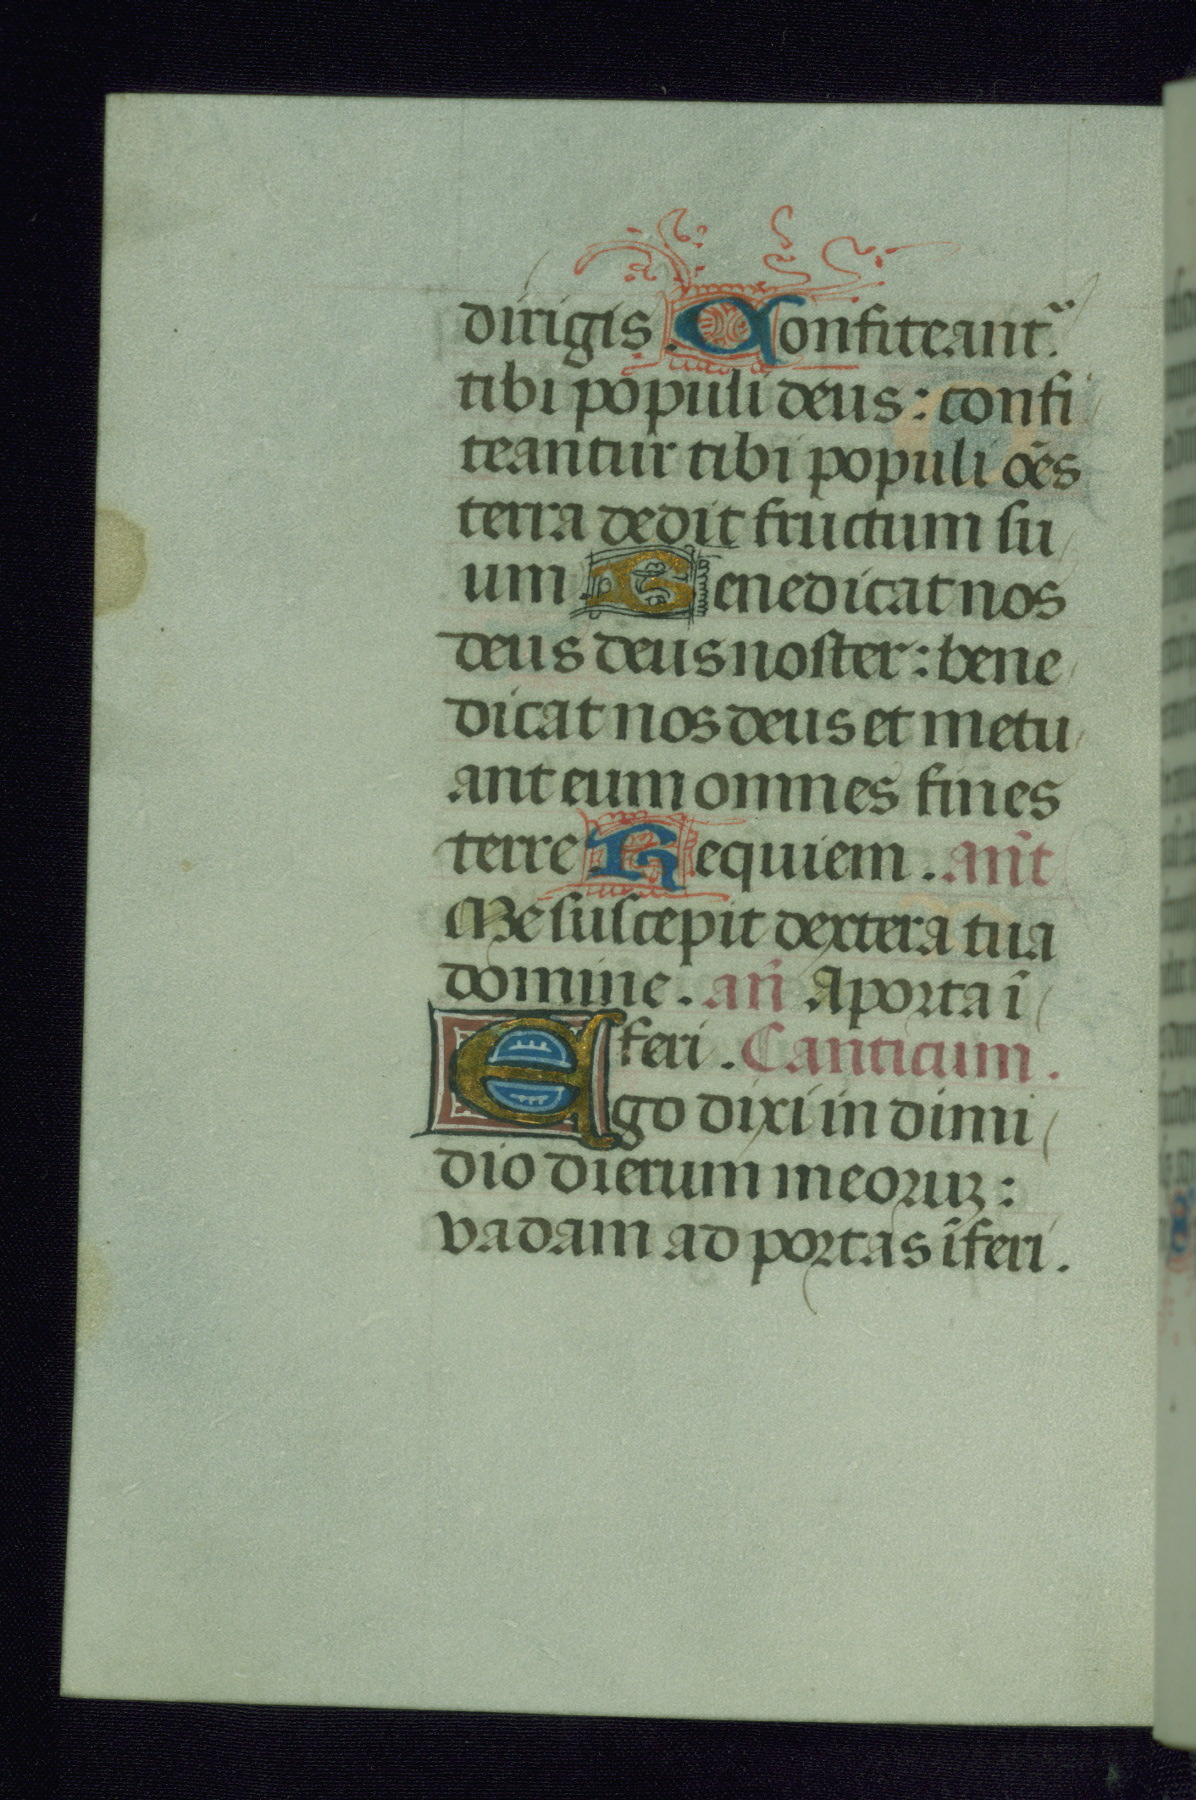 dirigis. Confiteant᷑
tibi populi deus: confi
teantur tibi populi oe̅s
terra dedit fructum su
um. Benedicat nos
deus deus noster: bene
dicat nos deus et metu
ant eum omnes fines
terre Requiem. an̅t
Me suscepit dextera tua
domine. an̅ A porta i̅
feri. Canticum.
Ego dixi in dimi
dio dierum meoꝝ:
vadam ad portas i̅feri.